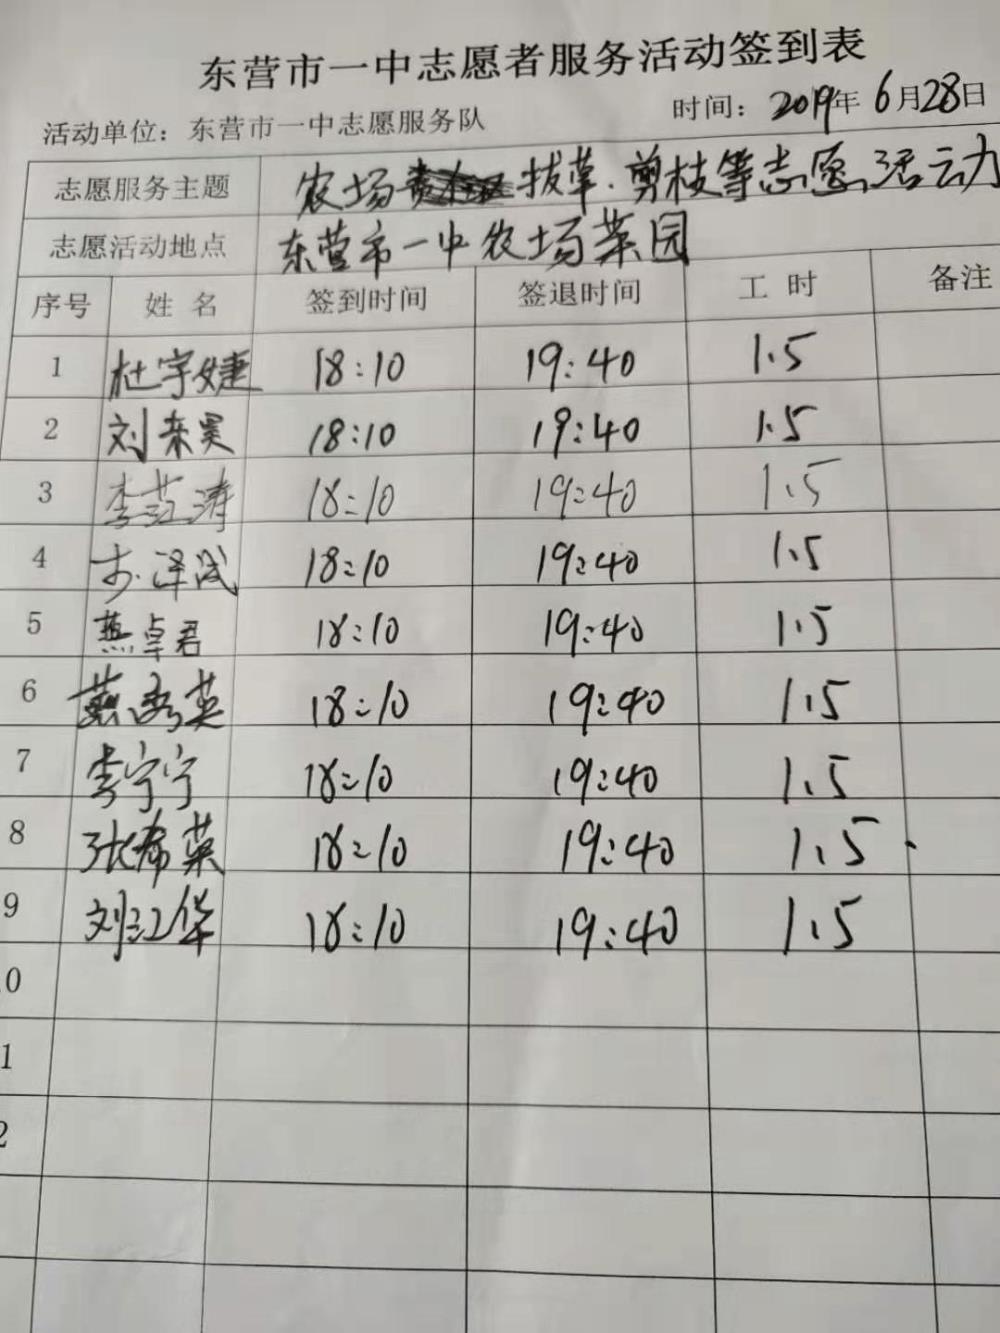 东营市一中志愿者服务活动签到表
活动单位：东营市一中志愿服务队 时间：2019年6月28日
志愿服务主题 农场 拔草、剪枝等志愿活动
志愿活动地点 东营市一中农场菜园
序号 姓名 签到时间 签退时间 工时 备注
1 杜宇婕 18:10 19:40 1.5
2 刘来昊 18:10 19:40 1.5
3 李江涛 18:10 19:40 1.5
4 18:10 19:40 1.5
5 燕卓君 18:10 19:40 1.5
6 18:10 19:40 1.5
7 李宁宁 18:10 19:40 1.5
8 张希英 18:10 19:40 1.5
9 刘江华 18:10 19:40 1.5
0
1
2